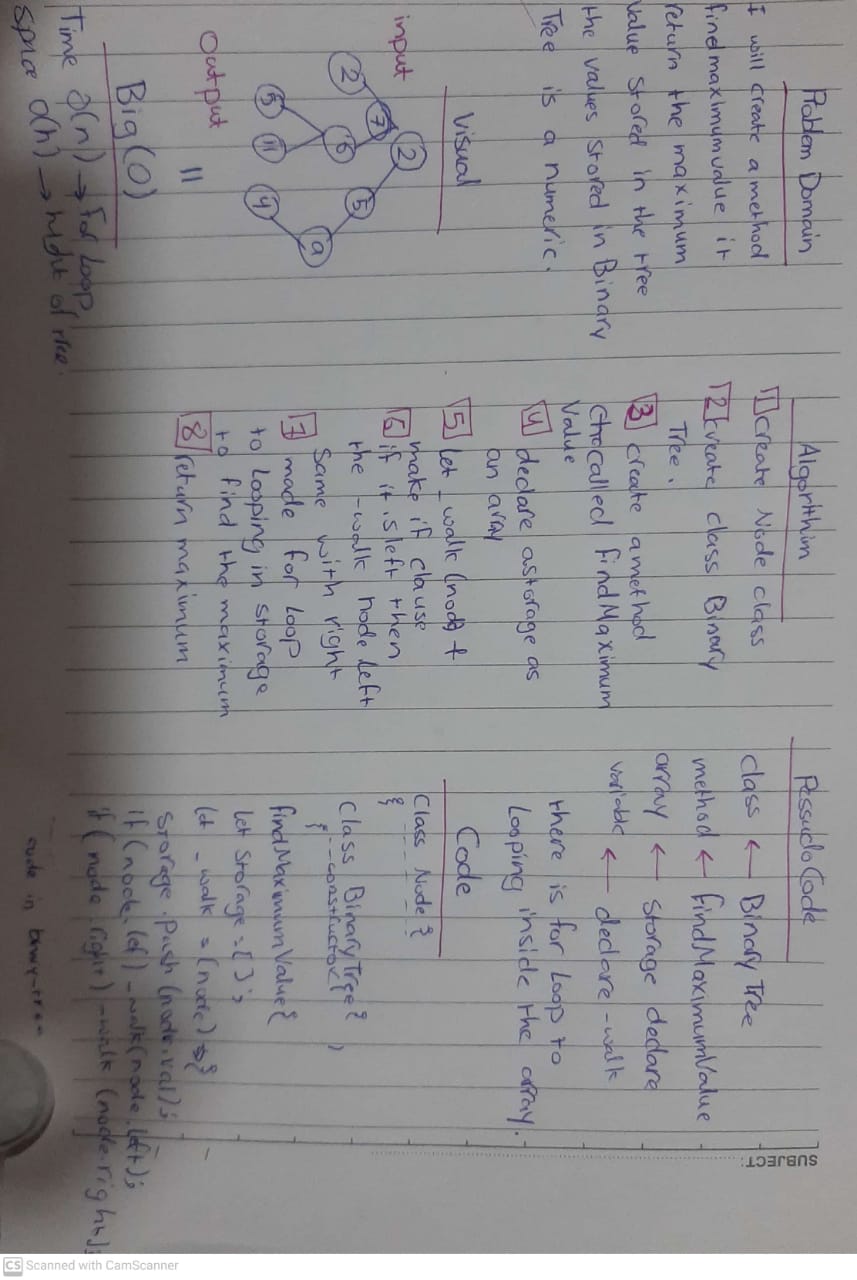 SUBJECT:
Problem Domain
I will create a method
findmaximumvalue it
return the maximum
value stored in the tree
the values stored in Binary
Tree is a numeric.
Visual
input
2
7
5
2
6
9
5
11
4
Output
11
Big(O)
Time O(n) → for Loop
space O(h) → hight of tree.
Algorithim
1 create Node class
2 create class Binary
Tree.
3 create a method
called findMaximum
Value
4 declare a storage as
an array
5 let _walk (node) &
make if clause
6 if it is left then
the -walk node left
Same with right
7 made for Loop
to Looping in storage
to find the maximum
8 return maximum
Pessudo Code
class ← Binary Tree
method ← findMaximumValue
array ← Storage declare
variable ← declare -walk
there is for Loop to
Looping inside the array.
Code
Class Node {
}
Class BinaryTree {
constructor()
}
findMaximumValue{
let Storage = [];
let _walk = (node) => {
Storage.push(node.val);
if (node.lef) -walk(node.left);
if (node.right) -walk (node.right);
code in binary-tree
CS Scanned with CamScanner